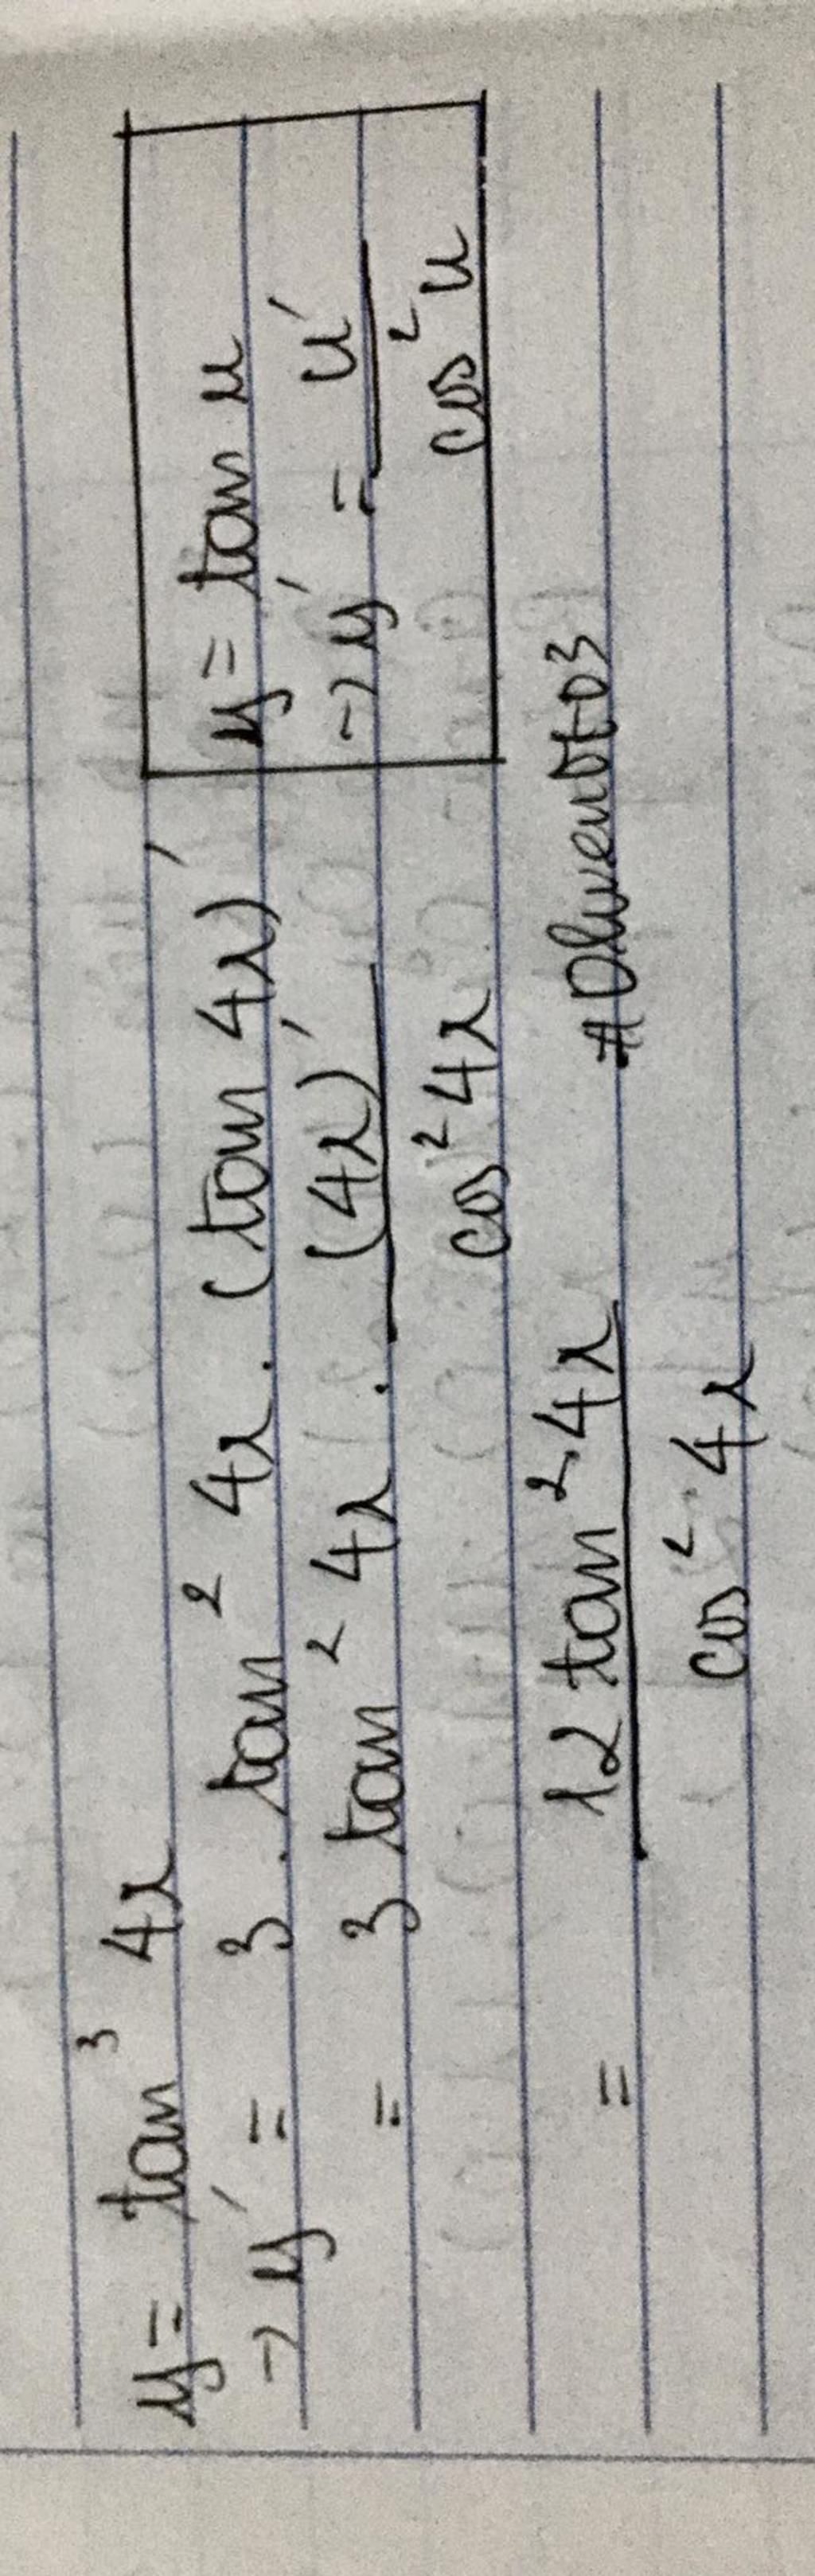 y = tan³ 4x
→ y' = 3 . tan² 4x . (tan 4x)'
= 3 tan² 4x . (4x)' / cos² 4x
= 12 tan² 4x / cos² 4x
y = tan u
→ y' = u' / cos² u